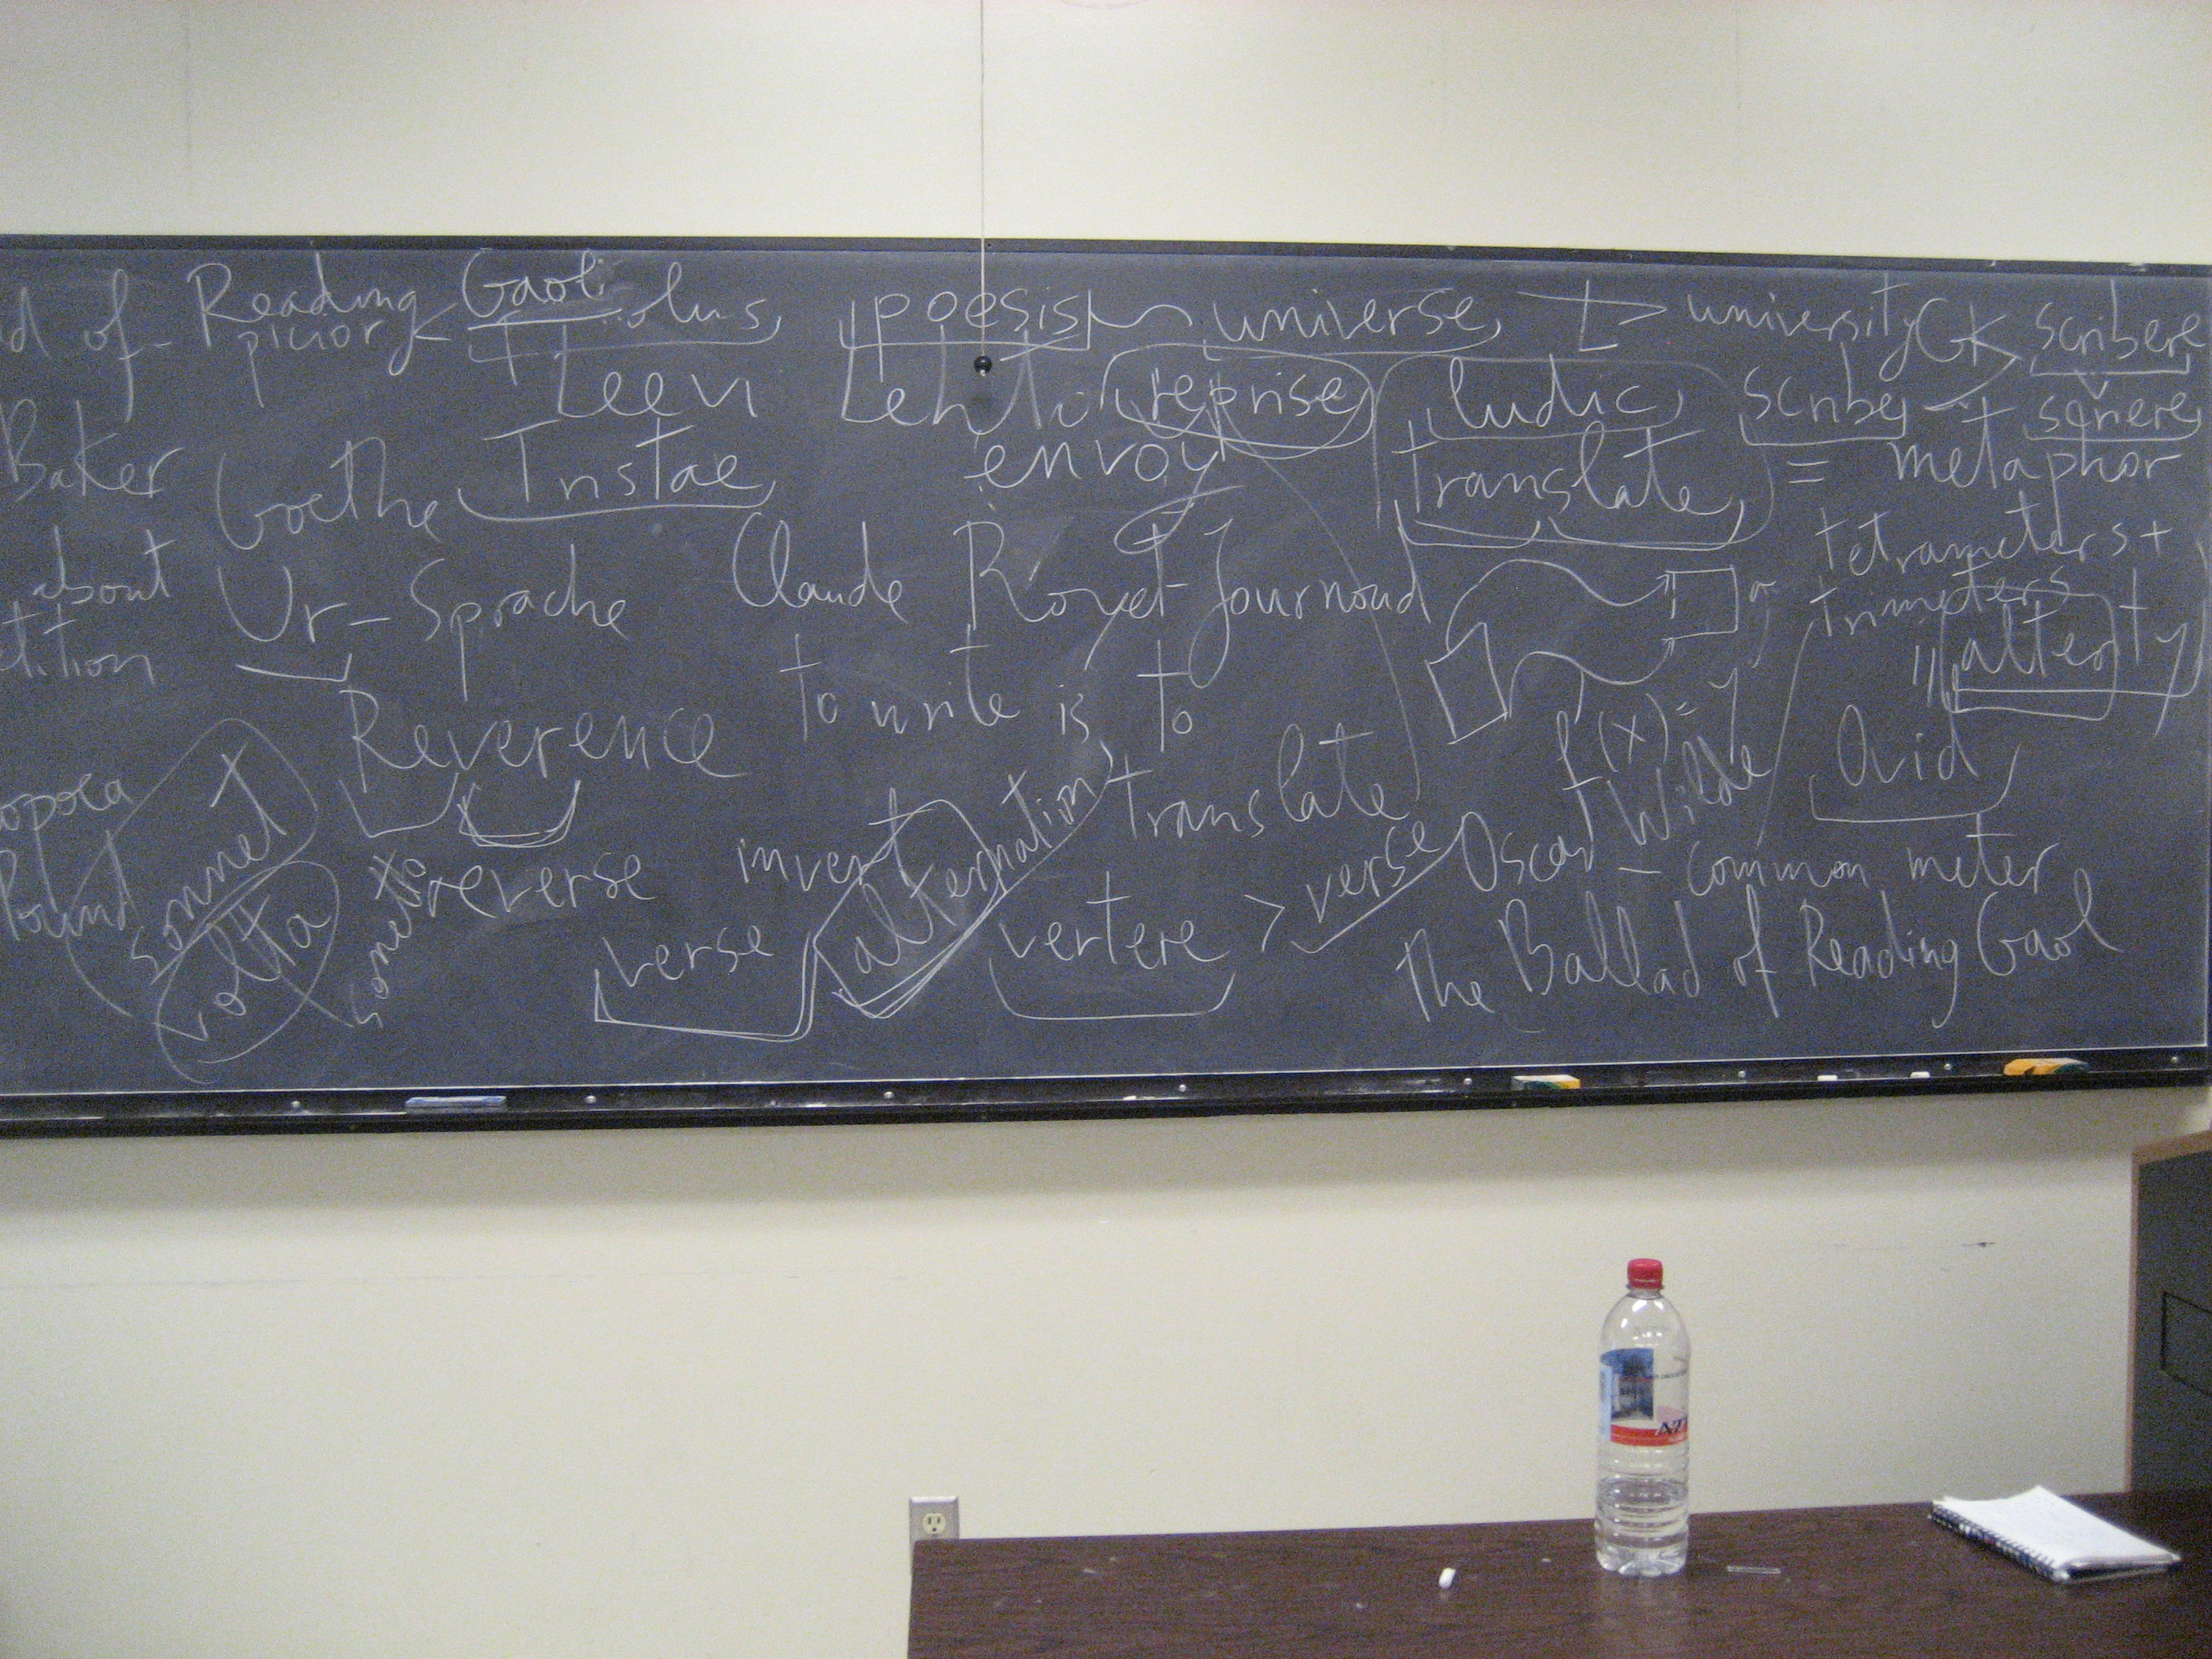 of Reading Gaol
poesis universe, L > university Gk scribere
Leevi Lehto reprise ludic scribe
Baker Goethe envoy translate = metaphor
about Ur-Sprache Claude Royet-Journoud tetrameters +
trimeters +
alterity
Reverence to write is to
translate f(x) = y Ovid
sonnet
volta
sonetto reverse invert alternation verse Oscar Wilde - common meter
Pound verse vertere > the Ballad of Reading Gaol